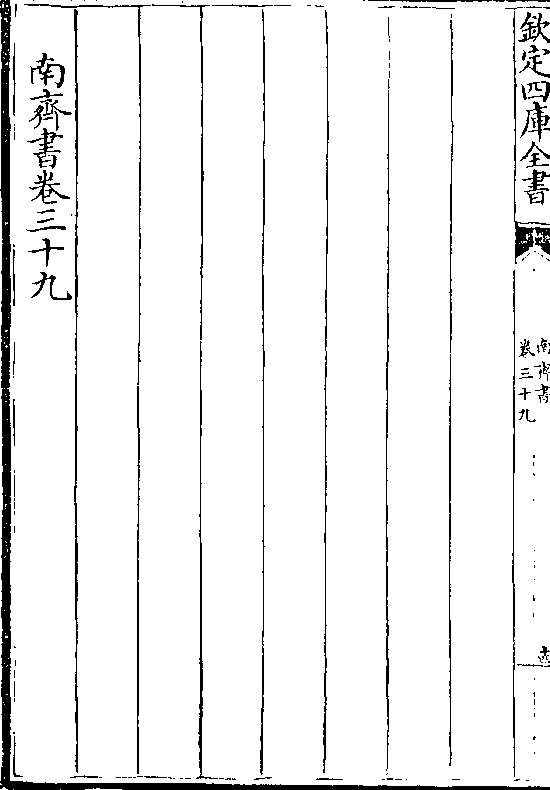 欽定四庫全書
南齊書
卷三十九
南齊書卷三十九